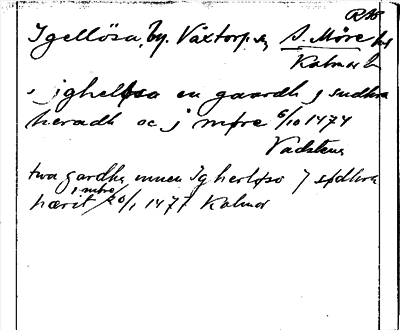 RAP
Igellösa, by. Växtorp sn S. Möre hd
Kalmar l.
i jgheløsa en gaardh j sudhra
heradh oc j møre 6/10 1474
Vadstena
twa gardha innen Igherløso j sødhra
hærit j møre 20/1 1477 Kalmar